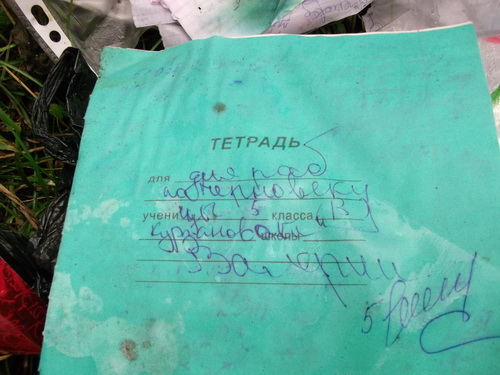 ТЕТРАДЬ
для для раб
по черновеку
учени цы 5 класса "В"
школы
Валерии
5